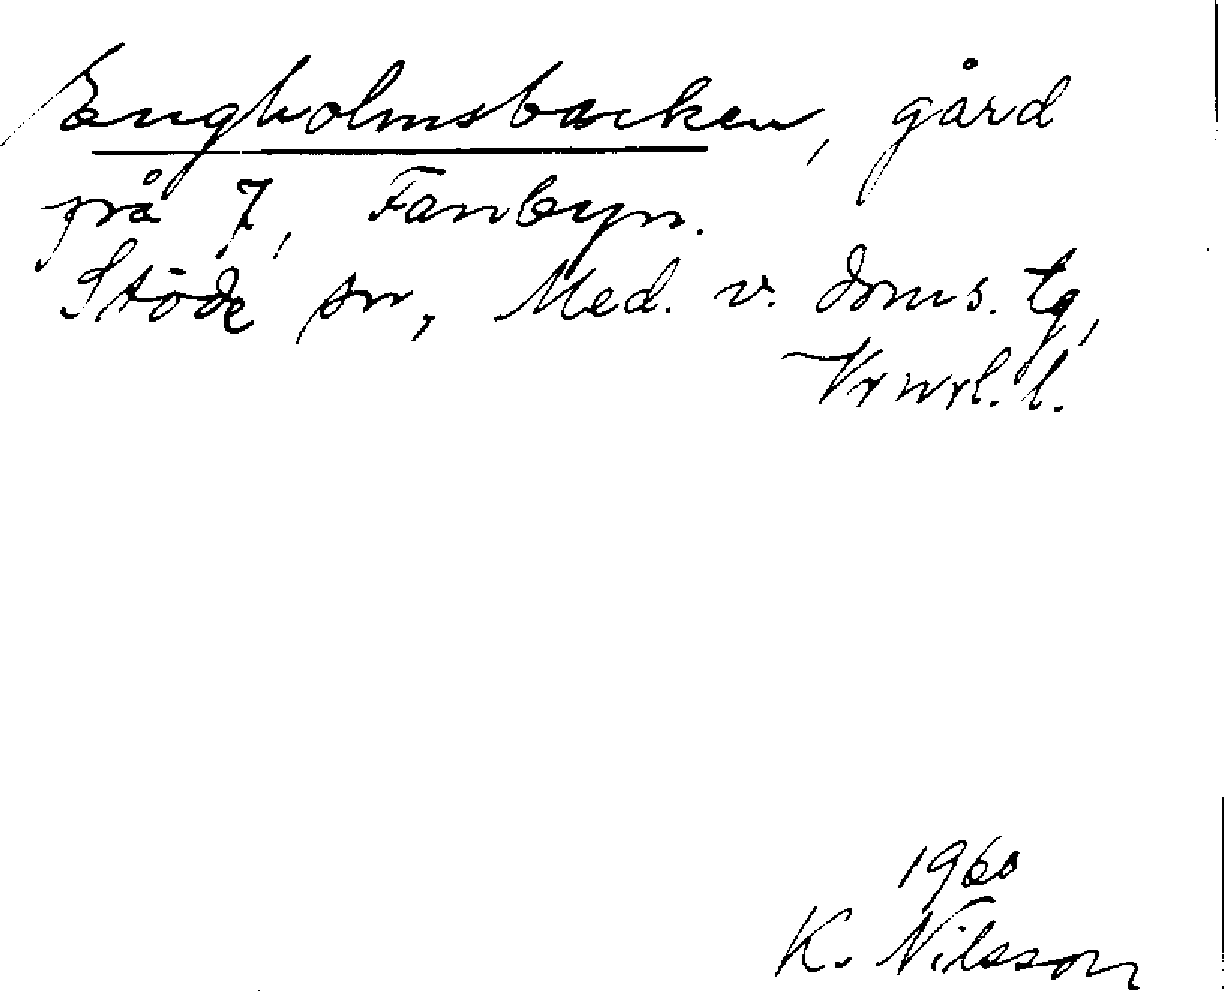 Engholmsbacken, gård
på 7, Fanbyn.
Stöde sn, Med. v. doms. tg,
Vrnrl. l.
1960
K. Nilsson